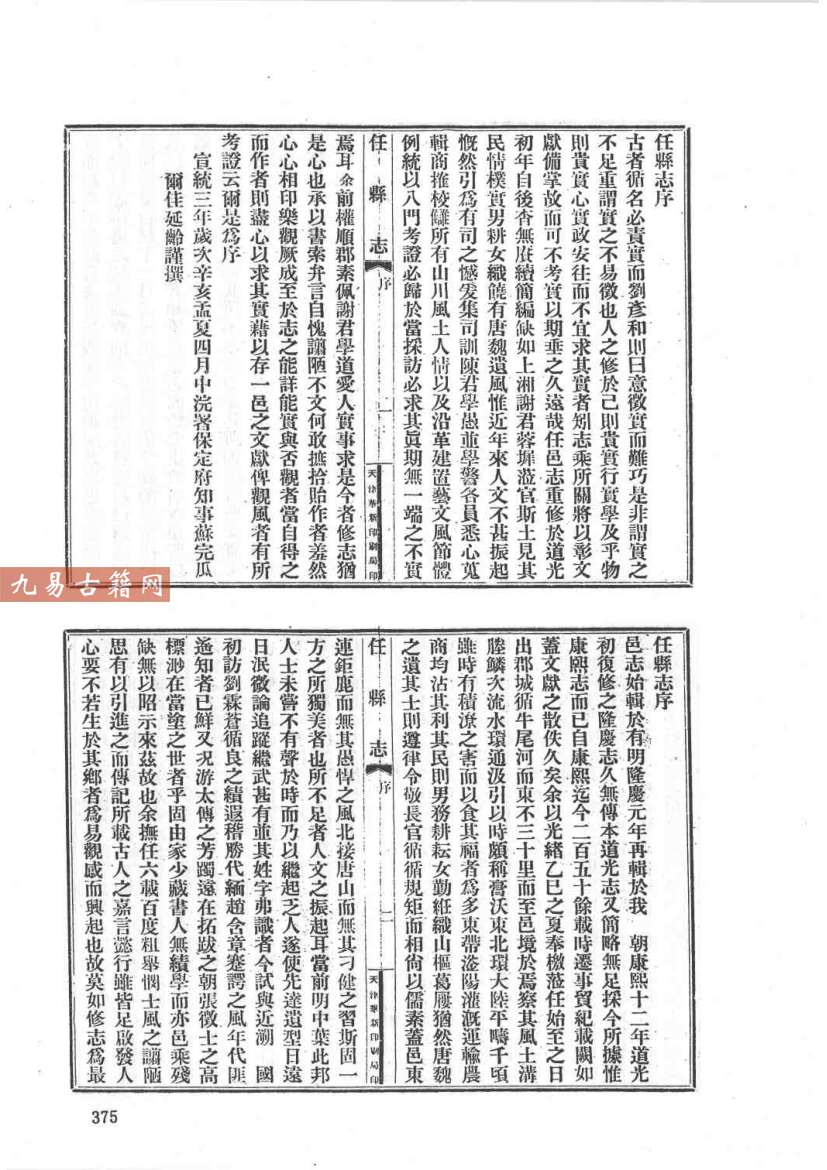 任縣志序
古者循名必責實而劉彥和則曰意徵實而難巧是非謂實之
不足重謂實之不易徵也人之修於己則貴實行實學及乎物
則貴實心實政安往而不宜求其實者矧志乘所關將以彰文
獻備掌故而可不考實以期垂之久遠哉任邑志重修於道光
初年自後杳無賡續簡編缺如上湘謝君蓉墀蒞官斯土見其
民情樸實男耕女織饒有唐魏遺風惟近年來人文不甚振起
慨然引爲有司之憾爰集司訓陳君學愚並學警各員悉心蒐
輯商搉校讎所有山川風土人情以及沿革建置藝文風節體
例統以八門考證必歸於當採訪必求其眞期無一端之不實
任縣志
序
一
天津華新印刷局印
焉耳余前權順郡素佩謝君學道愛人實事求是今者修志猶
是心也承以書索弁言自愧譾陋不文何敢摭拾貽作者羞然
心心相印樂觀厥成至於志之能詳能實與否觀者當自得之
而作者則盡心以求其實藉以存一邑之文獻俾觀風者有所
考證云爾是爲序
宣統三年歲次辛亥孟夏四月中浣署保定府知事蘇完瓜
爾佳延齡謹撰
九易古籍网
任縣志序
邑志始輯於有明隆慶元年再輯於我 朝康熙十二年道光
初復修之隆慶志久無傳本道光志又簡略無足採今所據惟
康熙志而已自康熙迄今二百五十餘載時遷事貿紀載闕如
蓋文獻之散佚久矣余以光緒乙巳之夏奉檄蒞任始至之日
出郡城循牛尾河而東不三十里而至邑境於焉察其風土溝
塍鱗次流水環通汲引以時頗稱膏沃東北環大陸平疇千頃
雖時有積潦之害而以食其福者爲多東帶滏陽灌溉運輸農
商均沾其利其民則男務耕耘女勤紝織山樞葛屨猶然唐魏
之遺其士則遵律令敬長官循循規矩而相尙以儒素蓋邑東
任縣志
序
二
天津華新印刷局印
連鉅鹿而無其愚悍之風北接唐山而無其刁健之習斯固一
方之所獨美者也所不足者人文之振起耳當前明中葉此邦
人士未嘗不有聲於時而乃以繼起乏人遂使先達遺型日遠
日泯微論追蹤繼武甚有重其姓字弗識者今試與近溯 國
初訪劉霖蒼循良之績遐稽勝代緬趙含章蹇諤之風年代匪
遙知者已鮮又况游太傅之芳躅遠在拓跋之朝張徵士之高
標渺在當塗之世者乎固由家少藏書人無績學而亦邑乘殘
缺無以昭示來茲故也余撫任六載百度粗舉憫士風之譾陋
思有以引進之而傳記所載古人之嘉言懿行雖皆足啟發人
心要不若生於其鄉者爲易觀感而興起也故莫如修志爲最
375